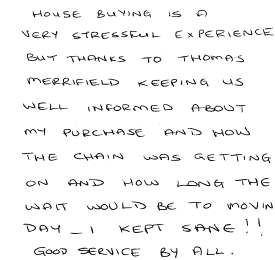 HOUSE BUYING IS A
VERY STRESSFUL EXPERIENCE
BUT THANKS TO THOMAS
MERRIFIELD KEEPING US
WELL INFORMED ABOUT
MY PURCHASE AND HOW
THE CHAIN WAS GETTING
ON AND HOW LONG THE
WAIT WOULD BE TO MOVIN
DAY _ I KEPT SANE!!
GOOD SERVICE BY ALL.